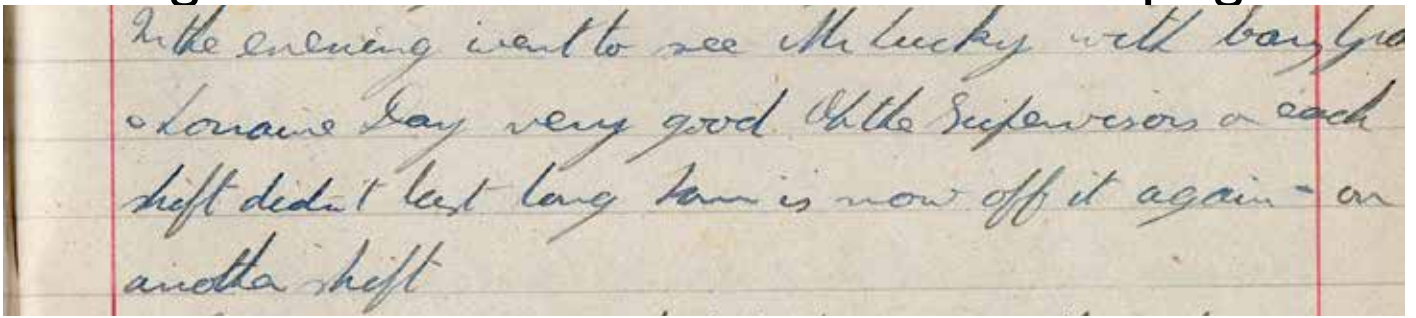 In the evening went to see Mr Lucky with Cary Gra
& Loraine Day very good. Oh the Supervisors on each
shift didn't last long Sam is now off it again - on
another shift